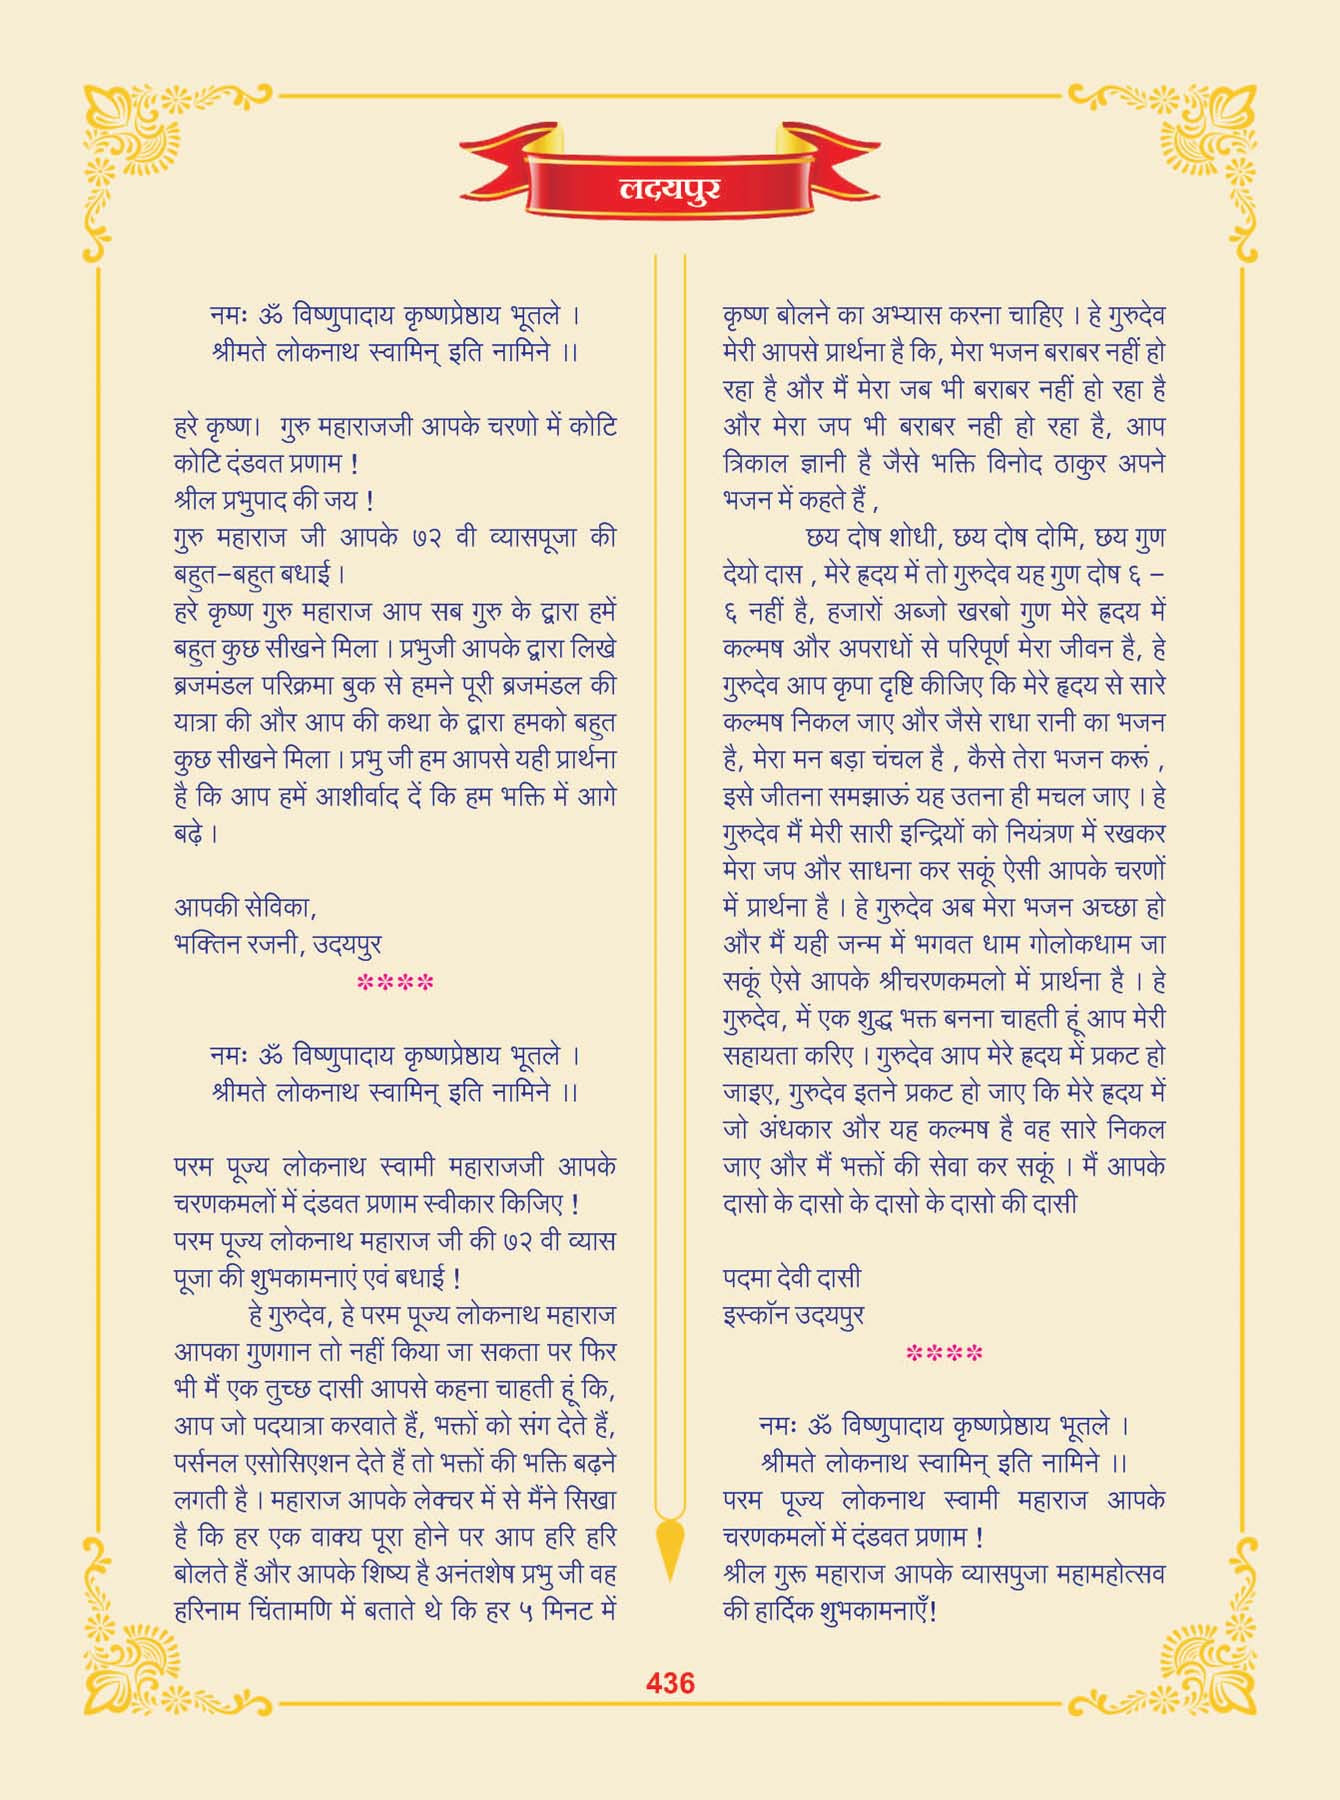 लदयपुर
नमः ॐ विष्णुपादाय कृष्णप्रेष्ठाय भूतले ।
श्रीमते लोकनाथ स्वामिन् इति नामिने ।।
हरे कृष्ण। गुरु महाराजजी आपके चरणो में कोटि
कोटि दंडवत प्रणाम !
श्रील प्रभुपाद की जय !
गुरु महाराज जी आपके ७२ वी व्यासपूजा की
बहुत–बहुत बधाई ।
हरे कृष्ण गुरु महाराज आप सब गुरु के द्वारा हमें
बहुत कुछ सीखने मिला । प्रभुजी आपके द्वारा लिखे
ब्रजमंडल परिक्रमा बुक से हमने पूरी ब्रजमंडल की
यात्रा की और आप की कथा के द्वारा हमको बहुत
कुछ सीखने मिला । प्रभु जी हम आपसे यही प्रार्थना
है कि आप हमें आशीर्वाद दें कि हम भक्ति में आगे
बढ़े ।
आपकी सेविका,
भक्तिन रजनी, उदयपुर
****
नमः ॐ विष्णुपादाय कृष्णप्रेष्ठाय भूतले ।
श्रीमते लोकनाथ स्वामिन् इति नामिने ।।
परम पूज्य लोकनाथ स्वामी महाराजजी आपके
चरणकमलों में दंडवत प्रणाम स्वीकार किजिए !
परम पूज्य लोकनाथ महाराज जी की ७२ वी व्यास
पूजा की शुभकामनाएं एवं बधाई !
हे गुरुदेव, हे परम पूज्य लोकनाथ महाराज
आपका गुणगान तो नहीं किया जा सकता पर फिर
भी मैं एक तुच्छ दासी आपसे कहना चाहती हूं कि,
आप जो पदयात्रा करवाते हैं, भक्तों को संग देते हैं,
पर्सनल एसोसिएशन देते हैं तो भक्तों की भक्ति बढ़ने
लगती है । महाराज आपके लेक्चर में से मैंने सिखा
है कि हर एक वाक्य पूरा होने पर आप हरि हरि
बोलते हैं और आपके शिष्य है अनंतशेष प्रभु जी वह
हरिनाम चिंतामणि में बताते थे कि हर ५ मिनट में
कृष्ण बोलने का अभ्यास करना चाहिए । हे गुरुदेव
मेरी आपसे प्रार्थना है कि, मेरा भजन बराबर नहीं हो
रहा है और मैं मेरा जब भी बराबर नहीं हो रहा है
और मेरा जप भी बराबर नही हो रहा है, आप
त्रिकाल ज्ञानी है जैसे भक्ति विनोद ठाकुर अपने
भजन में कहते हैं ,
छय दोष शोधी, छय दोष दोमि, छय गुण
देयो दास , मेरे हृदय में तो गुरुदेव यह गुण दोष ६ –
६ नहीं है, हजारों अब्जो खरबो गुण मेरे हृदय में
कल्मष और अपराधों से परिपूर्ण मेरा जीवन है, हे
गुरुदेव आप कृपा दृष्टि कीजिए कि मेरे हृदय से सारे
कल्मष निकल जाए और जैसे राधा रानी का भजन
है, मेरा मन बड़ा चंचल है , कैसे तेरा भजन करूं ,
इसे जीतना समझाऊं यह उतना ही मचल जाए । हे
गुरुदेव मैं मेरी सारी इन्द्रियों को नियंत्रण में रखकर
मेरा जप और साधना कर सकूं ऐसी आपके चरणों
में प्रार्थना है । हे गुरुदेव अब मेरा भजन अच्छा हो
और मैं यही जन्म में भगवत धाम गोलोकधाम जा
सकूं ऐसे आपके श्रीचरणकमलो में प्रार्थना है । हे
गुरुदेव, में एक शुद्ध भक्त बनना चाहती हूं आप मेरी
सहायता करिए । गुरुदेव आप मेरे हृदय में प्रकट हो
जाइए, गुरुदेव इतने प्रकट हो जाए कि मेरे हृदय में
जो अंधकार और यह कल्मष है वह सारे निकल
जाए और मैं भक्तों की सेवा कर सकूं । मैं आपके
दासो के दासो के दासो के दासो की दासी
पदमा देवी दासी
इस्कॉन उदयपुर
****
नमः ॐ विष्णुपादाय कृष्णप्रेष्ठाय भूतले ।
श्रीमते लोकनाथ स्वामिन् इति नामिने ।।
परम पूज्य लोकनाथ स्वामी महाराज आपके
चरणकमलों में दंडवत प्रणाम !
श्रील गुरू महाराज आपके व्यासपुजा महामहोत्सव
की हार्दिक शुभकामनाएँ!
436